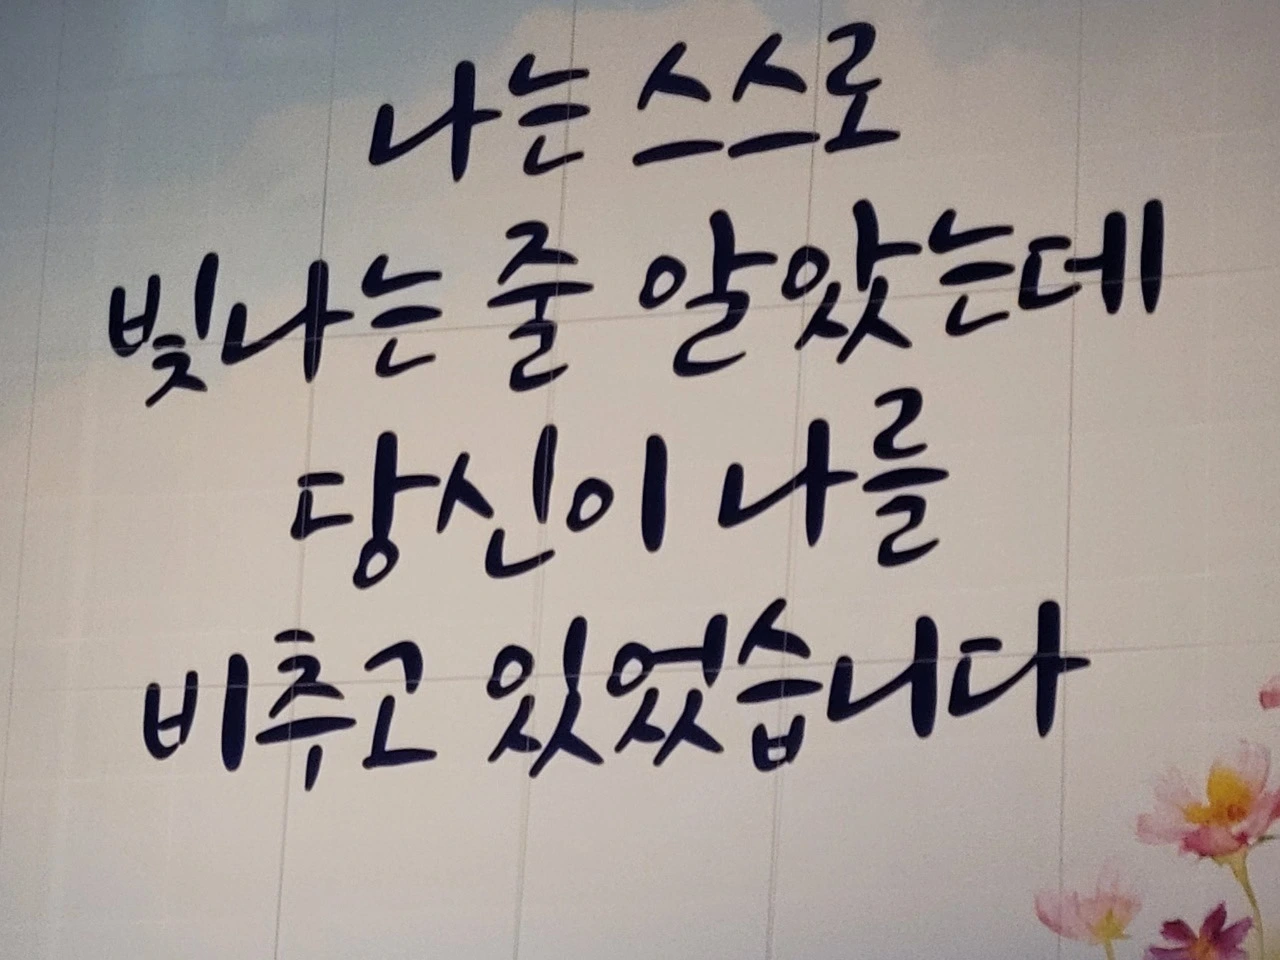 나는 스스로
빛나는 줄 알았는데
당신이 나를
비추고 있었습니다